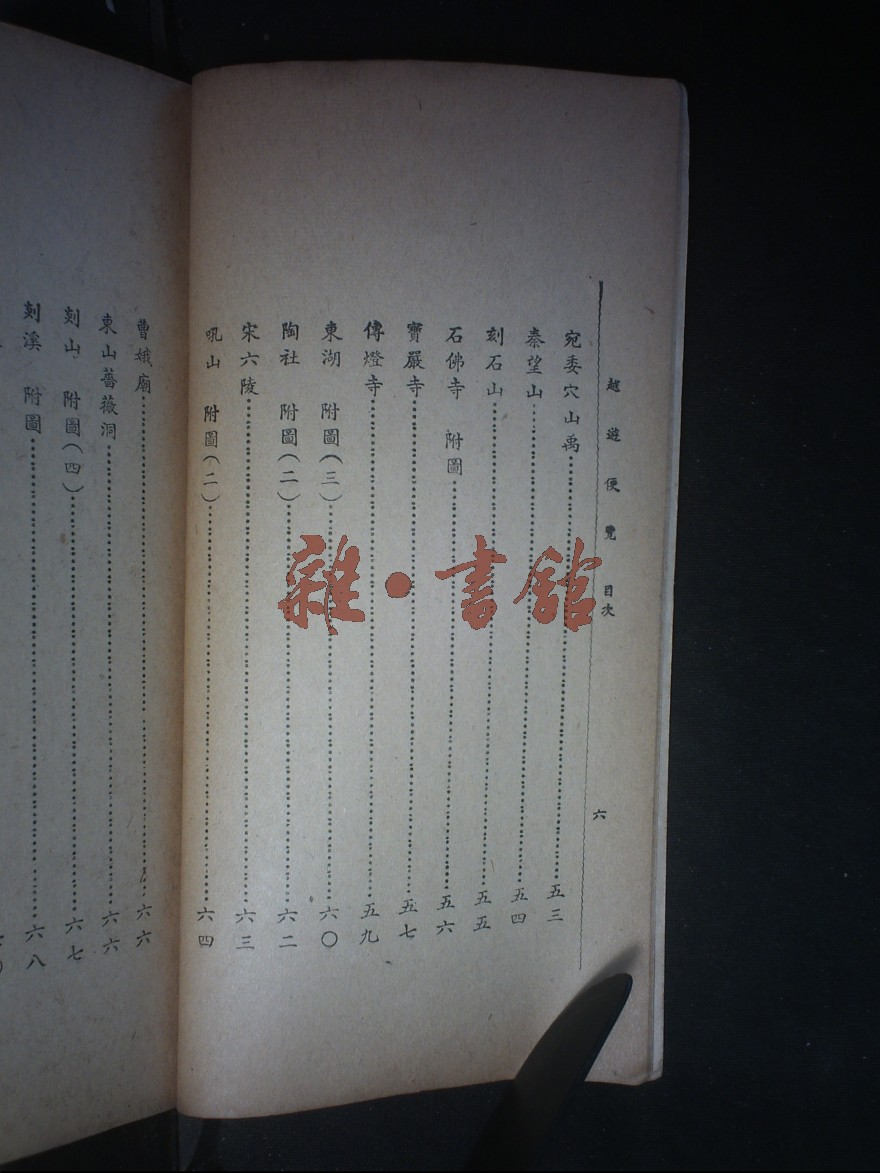 越遊便覽 目次
六
宛委穴山禹……五三
秦望山……五四
刻石山……五五
石佛寺 附圖……五六
寶嚴寺……五七
傳燈寺……五九
東湖 附圖(三)……六〇
陶社 附圖(二)……六二
宋六陵……六三
吼山 附圖(二)……六四
曹娥廟……六六
東山薔薇洞……六六
剡山 附圖(四)……六七
剡溪 附圖……六八
雜·書館